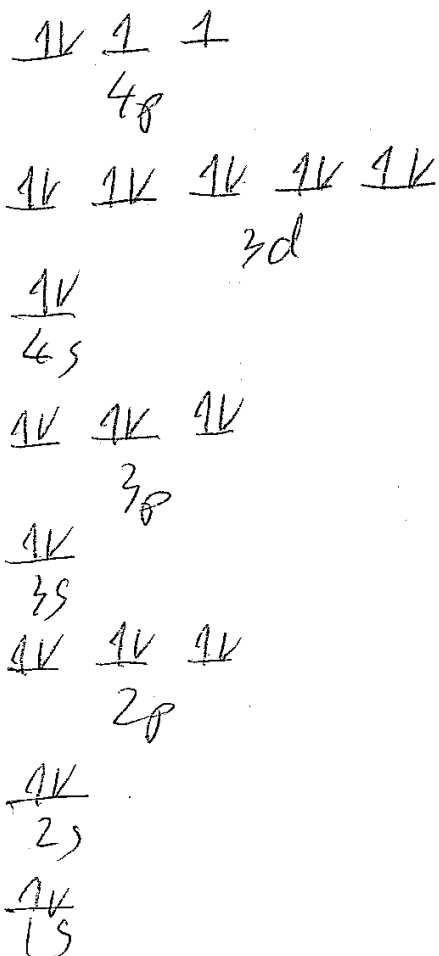 1v 1 1
4p
1v 1v 1v 1v 1v
3d
1v
4s
1v 1v 1v
3p
1v
3s
1v 1v 1v
2p
1v
2s
1v
1s